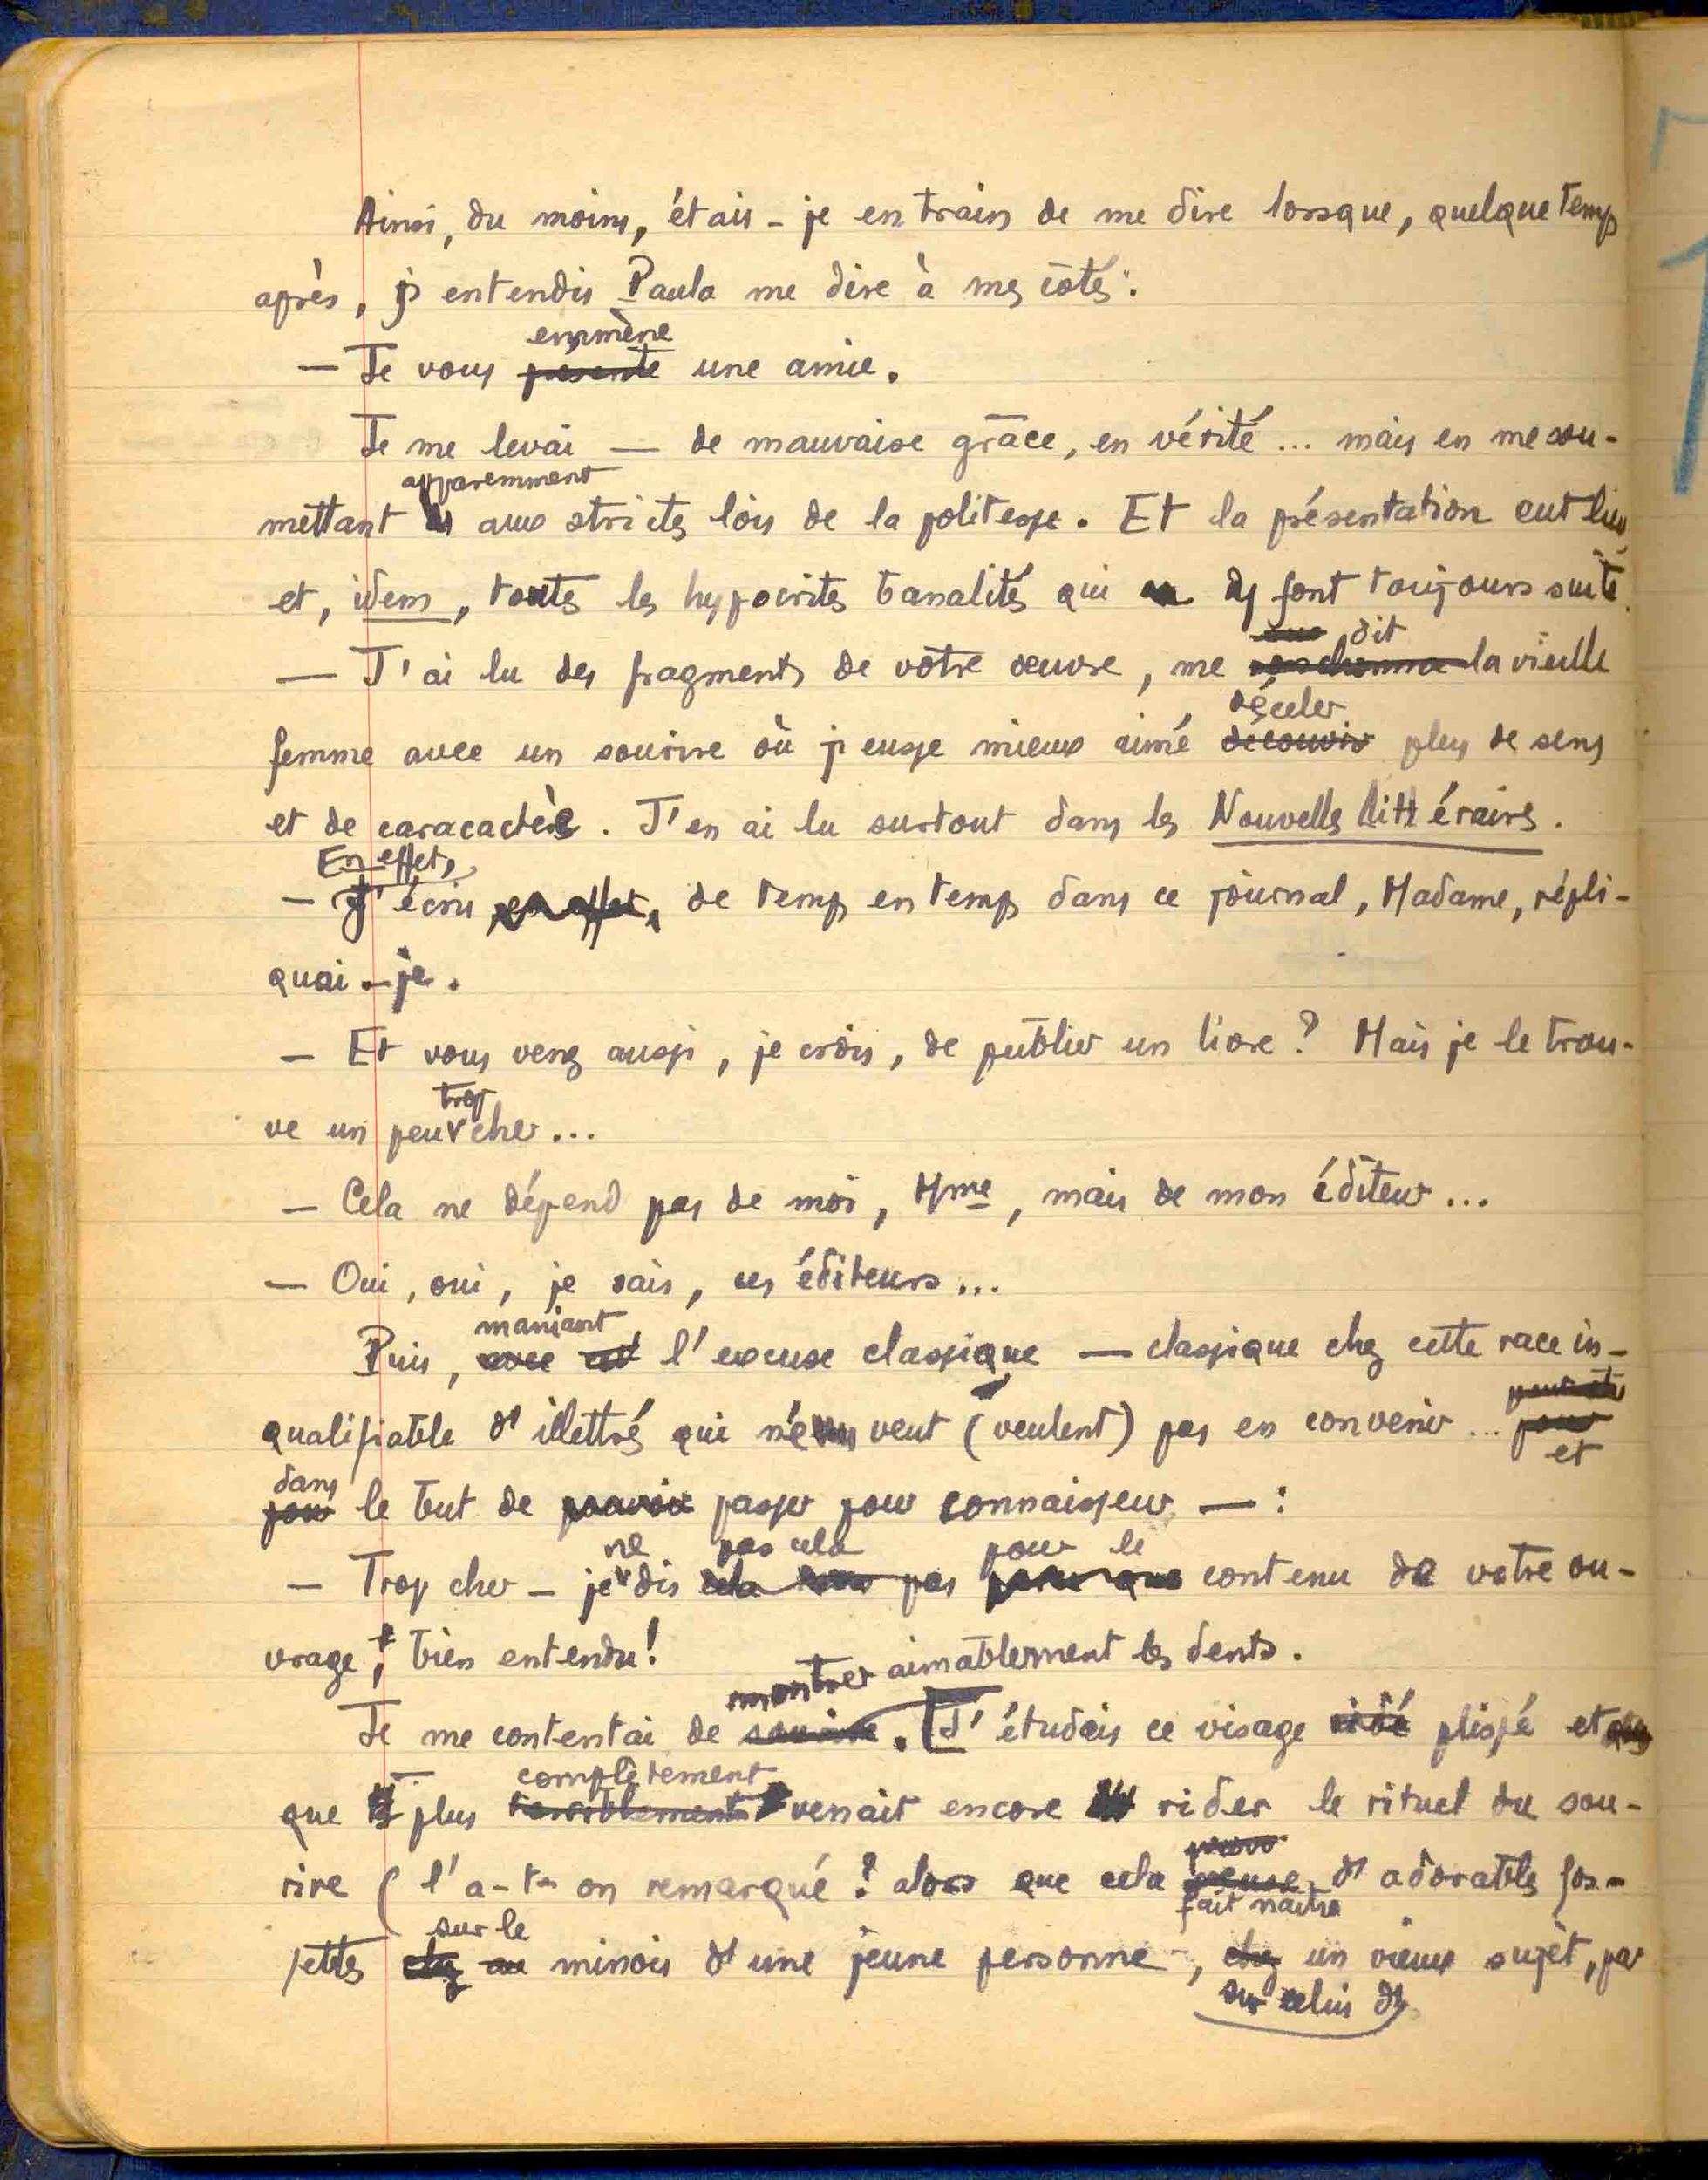 Ainsi, du moins, étais-je en train de me dire lorsque, quelque temps
après, j'entendis Paula me dire à mes côtés :
emmène
— Je vous présente une amie.
Je me levai — de mauvaise grâce, en vérité ... mais en me sou-
apparemment
mettant aux strictes lois de la politesse. Et la présentation eut lieu
et, idem, toutes les hypocrites banalités qui font toujours suite.
dit
— J'ai lu des fragments de votre œuvre, me la vieille
déceler
femme avec un sourire où j'eusse mieux aimé découvrir plus de sens
et de caracactère. J'en ai lu surtout dans les Nouvelles littéraires.
En effet,
— J'écris en effet, de temps en temps dans ce journal, Madame, répli-
quai-je.
— Et vous venez aussi, je crois, de publier un livre ? Mais je le trou-
trop
ve un peu cher ...
— Cela ne dépend pas de moi, Mme, mais de mon éditeur ...
— Oui, oui, je sais, ces éditeurs ...
maniant
Puis, avec l'excuse classique — classique chez cette race in-
qualifiable d'illettrés qui veut (veulent) pas en convenir ... pour
et
dans
pour le but de pouvoir passer pour connaisseur — :
ne pas cela pour le
— Trop cher — je dis cela pas contenu de votre ou-
vrage, bien entendu !
montrer aimablement les dents.
Je me contentai de sourire. [J'étudiais ce visage ridé plissé et
complètement
que plus terriblement venait encore rider le rituel du sou-
rire (l'a-t-on remarqué ? alors que cela creuse d'adorables fos-
fait naître
sur le
settes chez au minois d'une jeune personne -, chez un vieux sujet, par
sur celui d'